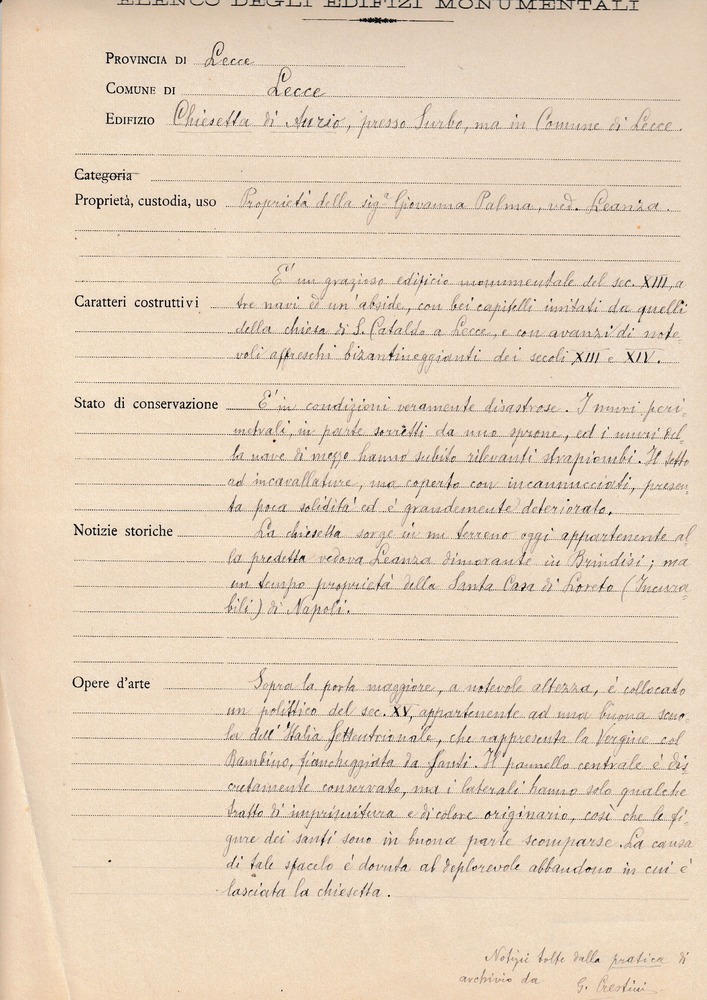 ELENCO DEGLI EDIFIZI MONUMENTALI
PROVINCIA DI Lecce
COMUNE DI Lecce
EDIFIZIO Chiesetta di Aurio, presso Surbo, ma in Comune di Lecce.
Categoria
Proprietà, custodia, uso Proprietà della sigª Giovanna Palma, ved. Leanza.
E' un grazioso edificio monumentale del sec. XIII, a
Caratteri costruttivi tre navi ed un'abside, con bei capitelli imitati da quelli
della chiesa di S. Cataldo a Lecce, e con avanzi di note-
voli affreschi bizantineggianti dei secoli XIII e XIV.
Stato di conservazione E' in condizioni veramente disastrose. I muri peri-
metrali, in parte sorretti da uno sprone, ed i muri del-
la nave di mezzo hanno subito rilevanti strapiombi. Il tetto
ad incavallature, ma coperto con incannucciati, presen-
ta poca solidità ed è grandemente deteriorato.
Notizie storiche La chiesetta sorge in un terreno oggi appartenente al
la predetta vedova Leanza dimorante in Brindisi; ma
un tempo proprietà della Santa Casa di Loreto (Incura-
bili) di Napoli.
Opere d'arte Sopra la porta maggiore, a notevole altezza, è collocato
un polittico del sec. XV, appartenente ad una buona scuo-
la dell'Italia Settentrionale, che rappresenta la Vergine col
Bambino, fiancheggiata da Santi. Il pannello centrale è dis-
cretamente conservato, ma i laterali hanno solo qualche
tratto di imprimitura e di colore originario, così che le fi-
gure dei santi sono in buona parte scomparse. La causa
di tale sfacelo è dovuta al deplorevole abbandono in cui è
lasciata la chiesetta.
Notizie tolte dalla pratica di
archivio da G. Crestini